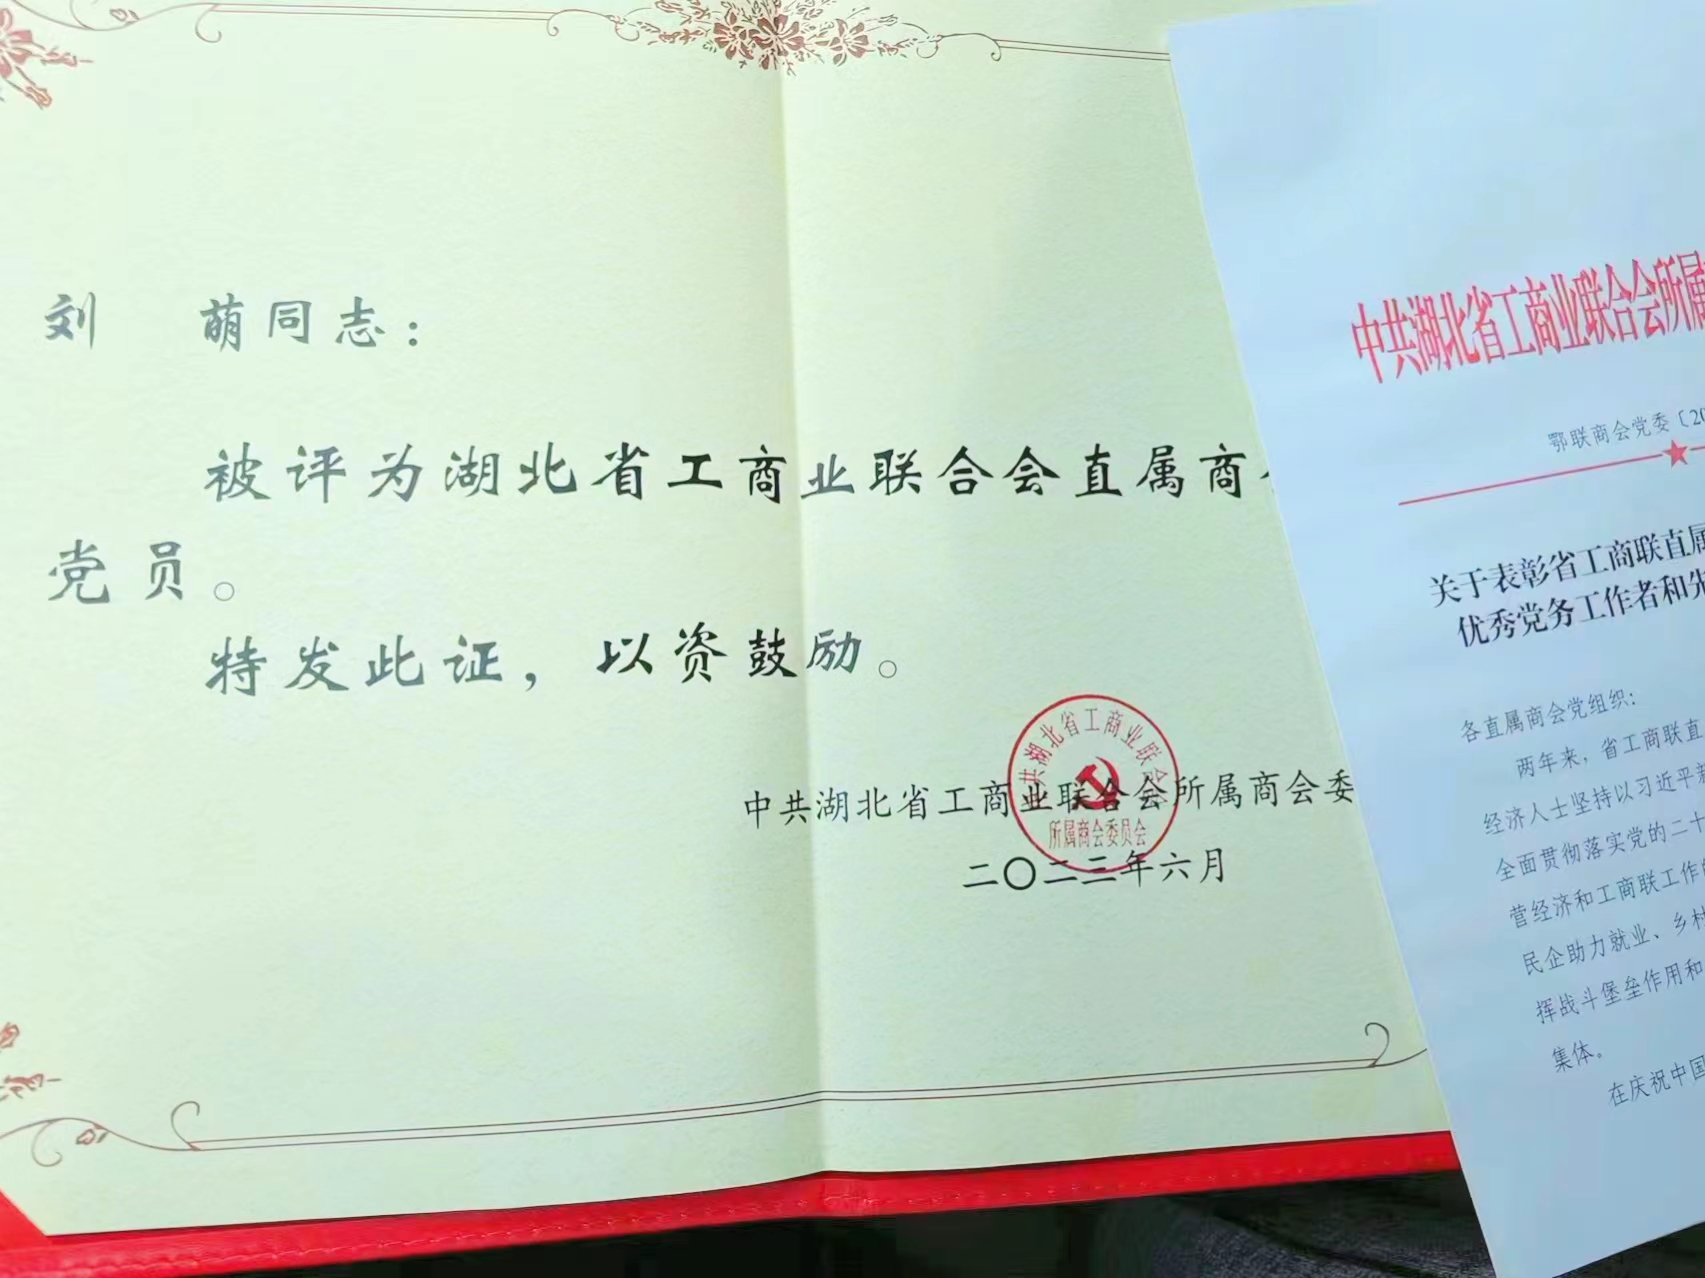 刘 萌同志：
被评为湖北省工商业联合会直属商
党员。
特发此证，以资鼓励。
中共湖北省工商业联合会所属商会委
二〇二三年六月
中共湖北省工商业联合会
所属商会委员会
中共湖北省工商业联合会所属
鄂联商会党委〔20
关于表彰省工商联直属
优秀党务工作者和先
各直属商会党组织：
两年来，省工商联直
经济人士坚持以习近平新
全面贯彻落实党的二十
营经济和工商联工作的
民企助力就业、乡村
挥战斗堡垒作用和
集体。
在庆祝中国